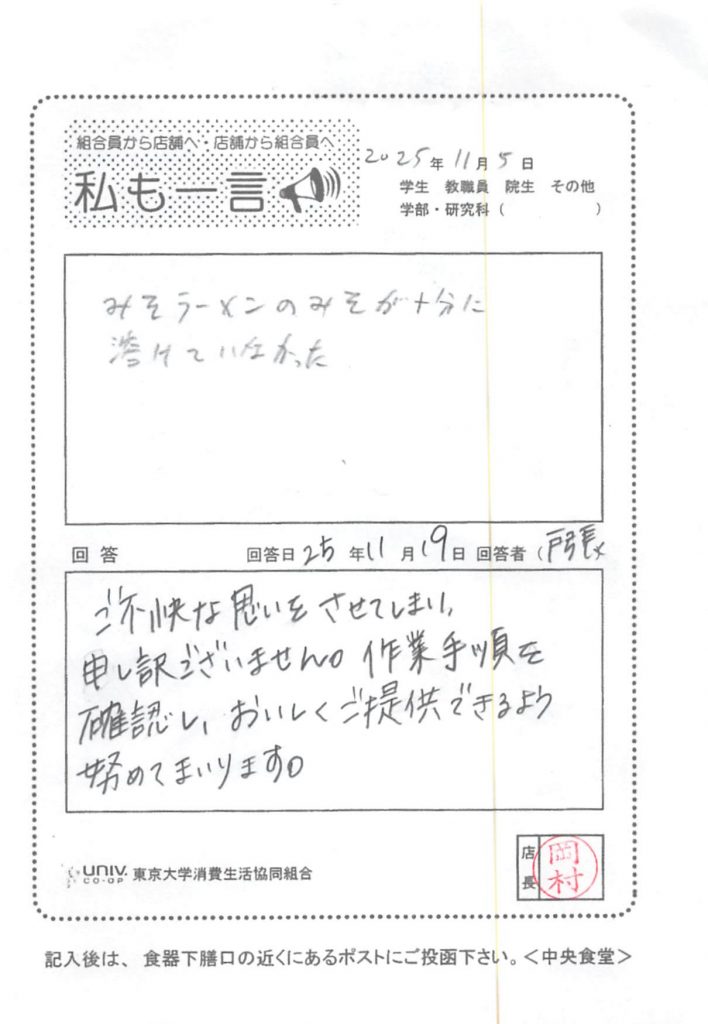 組合員から店舗へ・店舗から組合員へ
私も一言
2025年11月5日
学生 教職員 院生 その他
学部・研究科（ ）
みそラーメンのみそが十分に
溶けていなかった
回答 回答日25年11月19日 回答者（
ご不快な思いをさせてしまい、
申し訳ございません。作業手順を
確認し、おいしくご提供できるよう
努めてまいります。
UNIV. CO-OP 東京大学消費生活協同組合
店長 岡村
記入後は、食器下膳口の近くにあるポストにご投函下さい。＜中央食堂＞